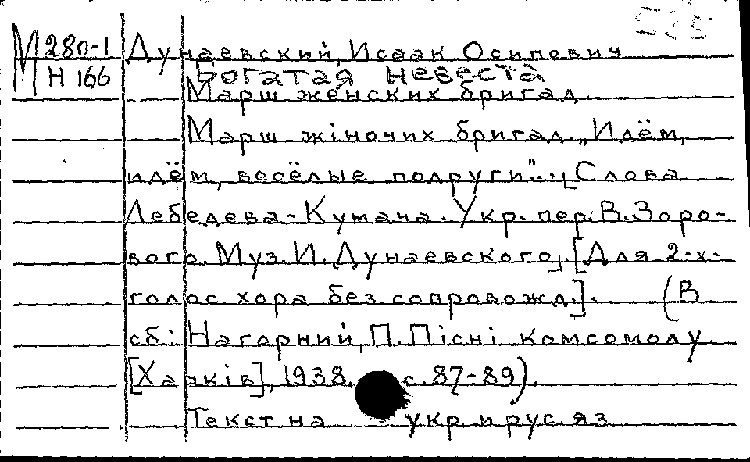 М 280-1 Дунаевский, Исаак Осипович
Н 166 Богатая невеста
Марш женских бригад.
Марш жіночих бригад. „Идём,
идём, весёлые подруги"... [Слова
Лебедева-Кумача. Укр. пер. В. Зоро-
вого. Муз. И. Дунаевского]. [Для 2-х-
голос. хора без сопровожд.]. (В
сб.: Нагорний, П. Пісні комсомолу
[Харків], 1938. с. 87-89).
Текст на укр. и рус. яз.